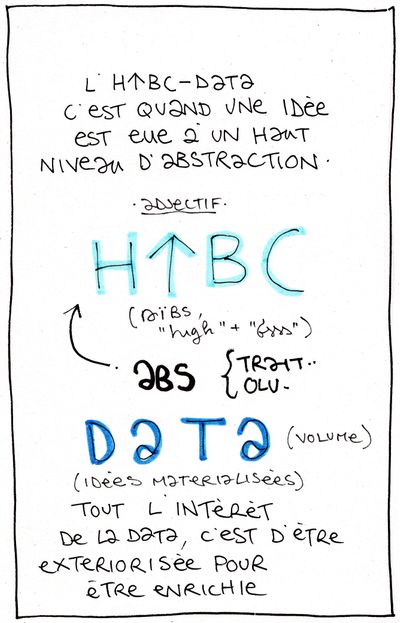 L'H↑BC-DATA
C'EST QUAND UNE IDÉE
EST EUE À UN HAUT
NIVEAU D'ABSTRACTION.
·ADJECTIF·
H↑BC
(AÏBS,
"high" + "
ABS { TRAIT..
OLU-
DATA (VOLUME)
(IDÉES MATERIALISÉES)
TOUT L'INTÉRÊT
DE LA DATA, C'EST D'ÊTRE
EXTERIORISÉE POUR
ÊTRE ENRICHIE